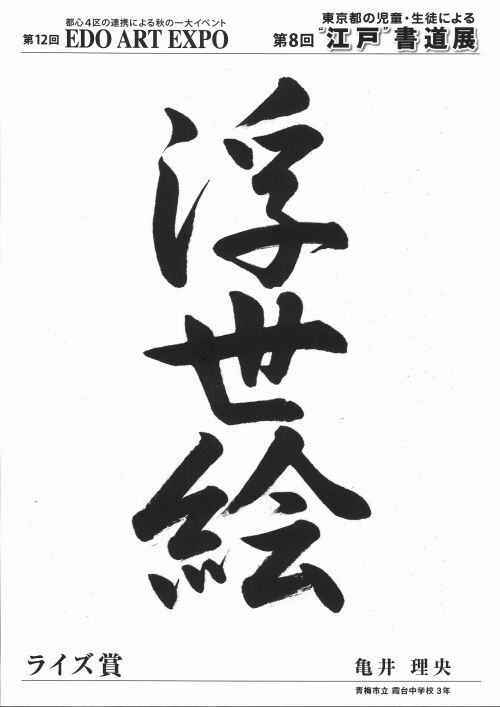 都心4区の連携による秋の一大イベント
第12回 EDO ART EXPO
東京都の児童・生徒による
第8回 "江戸" 書道展
浮世絵
ライズ賞
亀井 理央
青梅市立 霞台中学校 3年